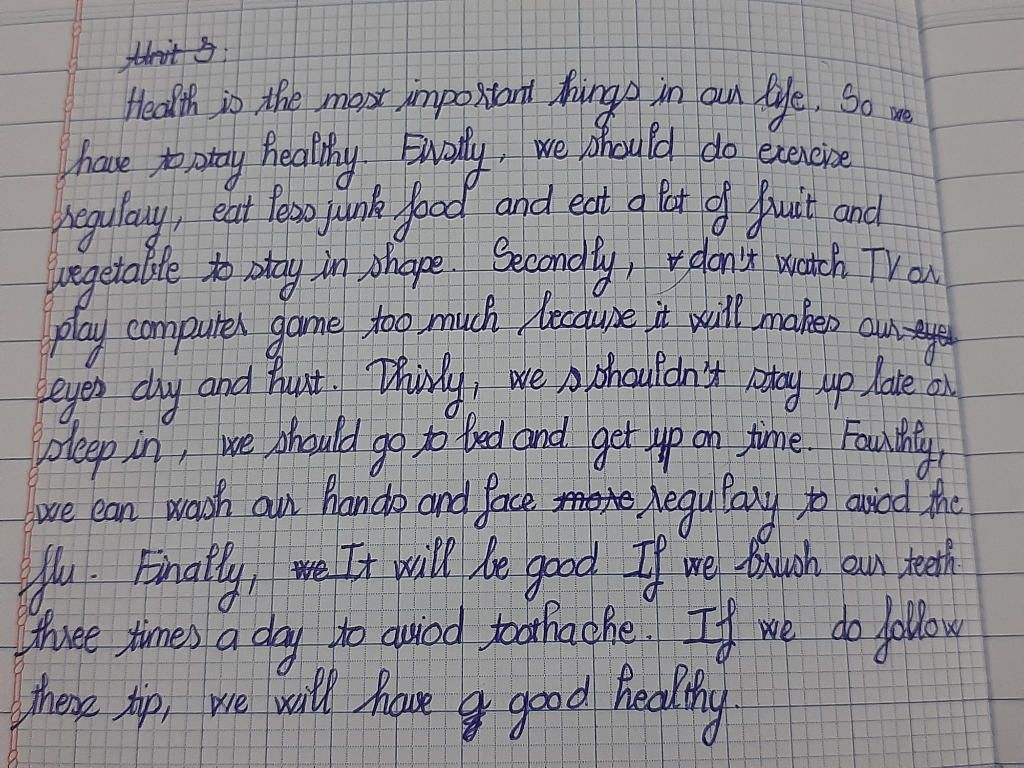 Unit 3.
Health is the most important things in our life. So we
have to stay healthy. Firstly, we should do exercise
regulary, eat less junk food and eat a lot of fruit and
vegetable to stay in shape. Secondly, don't watch TV or
play computer game too much because it will makes our eyes
eyes dry and hurt. Thirly, we shouldn't stay up late or
sleep in, we should go to bed and get up on time. Fourthly,
we can wash our hands and face more regulary to aviod the
flu. Finally, we It will be good If we brush our teeth
three times a day to aviod toothache. If we do follow
these tip, we will have a good healthy.